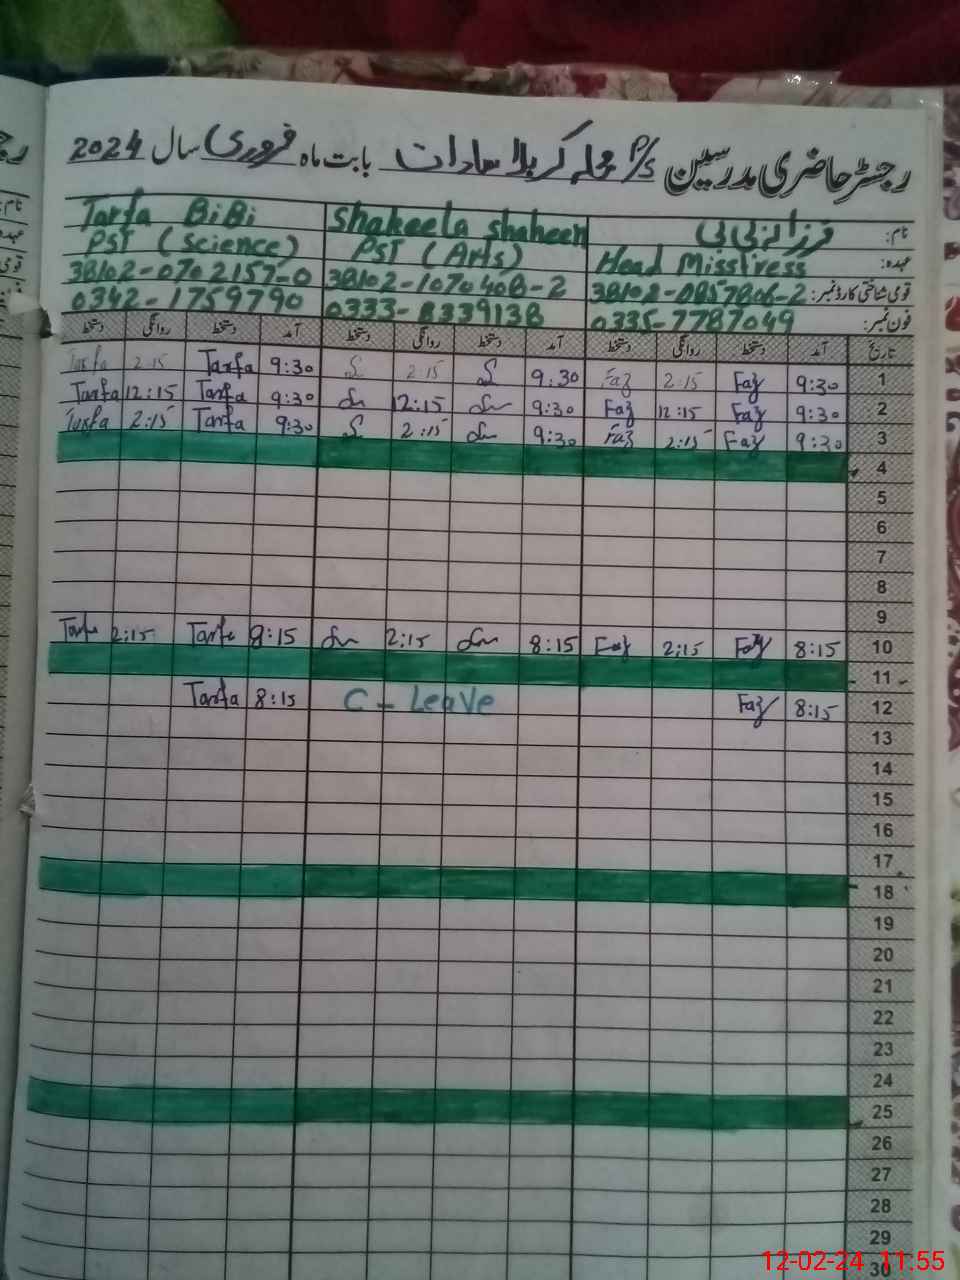 رجسٹر حاضری مدرسین P/S محلہ کربلا سادات بابت ماہ فروری سال 2024
نام: فرزانہ بی بی Shakeela Shaheen Tarfa BiBi
عہدہ: Head Misstress PST (Arts) PST (Science)
قومی شناختی کارڈ نمبر: 38102-0857806-2 38102-1070408-2 38102-0702157-0
فون نمبر: 0335-7787049 0333-8339138 0342-1759790
تاریخ آمد دستخط روانگی دستخط آمد دستخط روانگی دستخط آمد دستخط روانگی دستخط
1 9:30 Faz 2:15 Faz 9:30 2:15 9:30 Tarfa 2:15 Tarfa
2 9:30 Faz 12:15 Faz 9:30 12:15 9:30 Tarfa 12:15 Tarfa
3 9:30 Faz 2:15 Faz 9:30 2:15 9:30 Tarfa 2:15 Tarfa
4
5
6
7
8
9
10 8:15 Faz 2:15 Faz 8:15 2:15 8:15 Tarfa 2:15 Tarfa
11
12 8:15 Faz C - Leave 8:15 Tarfa
13
14
15
16
17
18
19
20
21
22
23
24
25
26
27
28
29
30
12-02-24 11:55